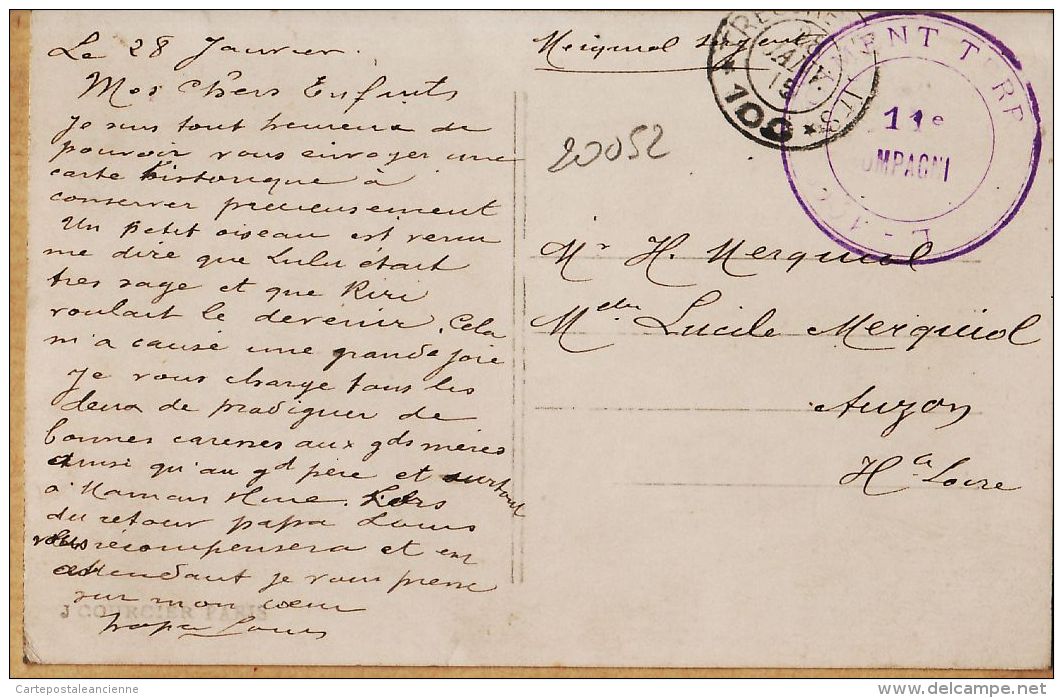 Le 28 Janvier.
Mes Chers Enfants
Je suis tout heureux de
pouvoir vous envoyer une
carte historique à
conserver precieusement
Un petit oiseau est venu
me dire que Lulu était
tres sage et que Riri
voulait le devenir. Cela
m'a causé une grande joie
Je vous charge tous les
deux de prodiguer de
bonnes caresses aux gds mères
ainsi qu'au gd père et surtout
à Maman. Lors
du retour papa Louis
vous recompensera et en
attendant je vous presse
sur mon cœur
papa Louis
J COURCIER PARIS
Merquiol
20052
TRESOR
28
JANV.
15
* 106 *
MENT TERR
11e
OMPAGNI
Mr H. Merquiol
Melle Lucile Merquiol
Auzon
Hte Loire
Cartepostaleancienne
delcampe.net